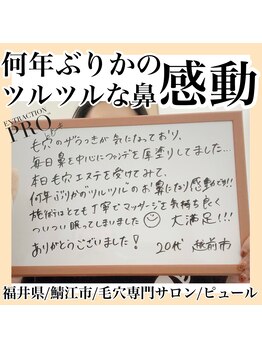 何年ぶりかの
ツルツルな鼻 感動
EXTRACTION
PRO
毛穴のザラつきが気になっており、
毎日鼻を中心にファンデを厚塗りしてました…
本日毛穴エステを受けてみて、
何年ぶりかのツルツルのお鼻になり感動です!!
施術はとても丁寧でマッサージも気持ち良く
ついつい眠ってしまいました 大満足!!!
ありがとうございました! 20代 越前市
福井県/鯖江市/毛穴専門サロン/ピュール